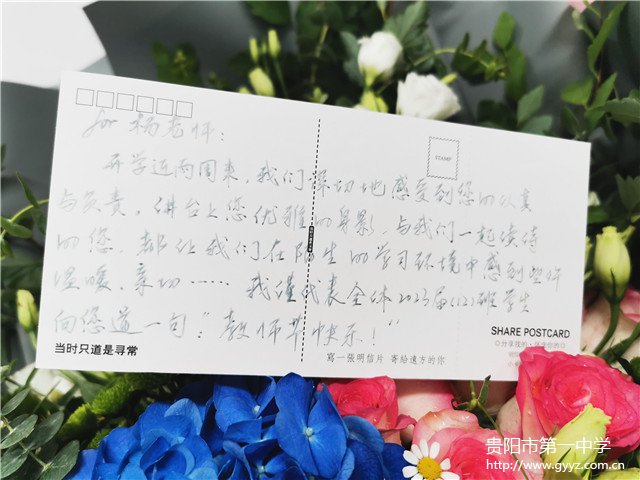 for 杨老师：
开学近两周来，我们深切地感受到您的认真
与负责，讲台上您优雅的身影，与我们一起读诗
的您，都让我们在陌生的学习环境中感到些许
温暖、亲切……我谨代表全体2023届(12)班学生
向您道一句：“教师节快乐！”
STAMP
当时只道是寻常
寫一張明信片 寄給遠方的你
SHARE POSTCARD
贵阳市第一中学
http://www.gyyz.com.cn